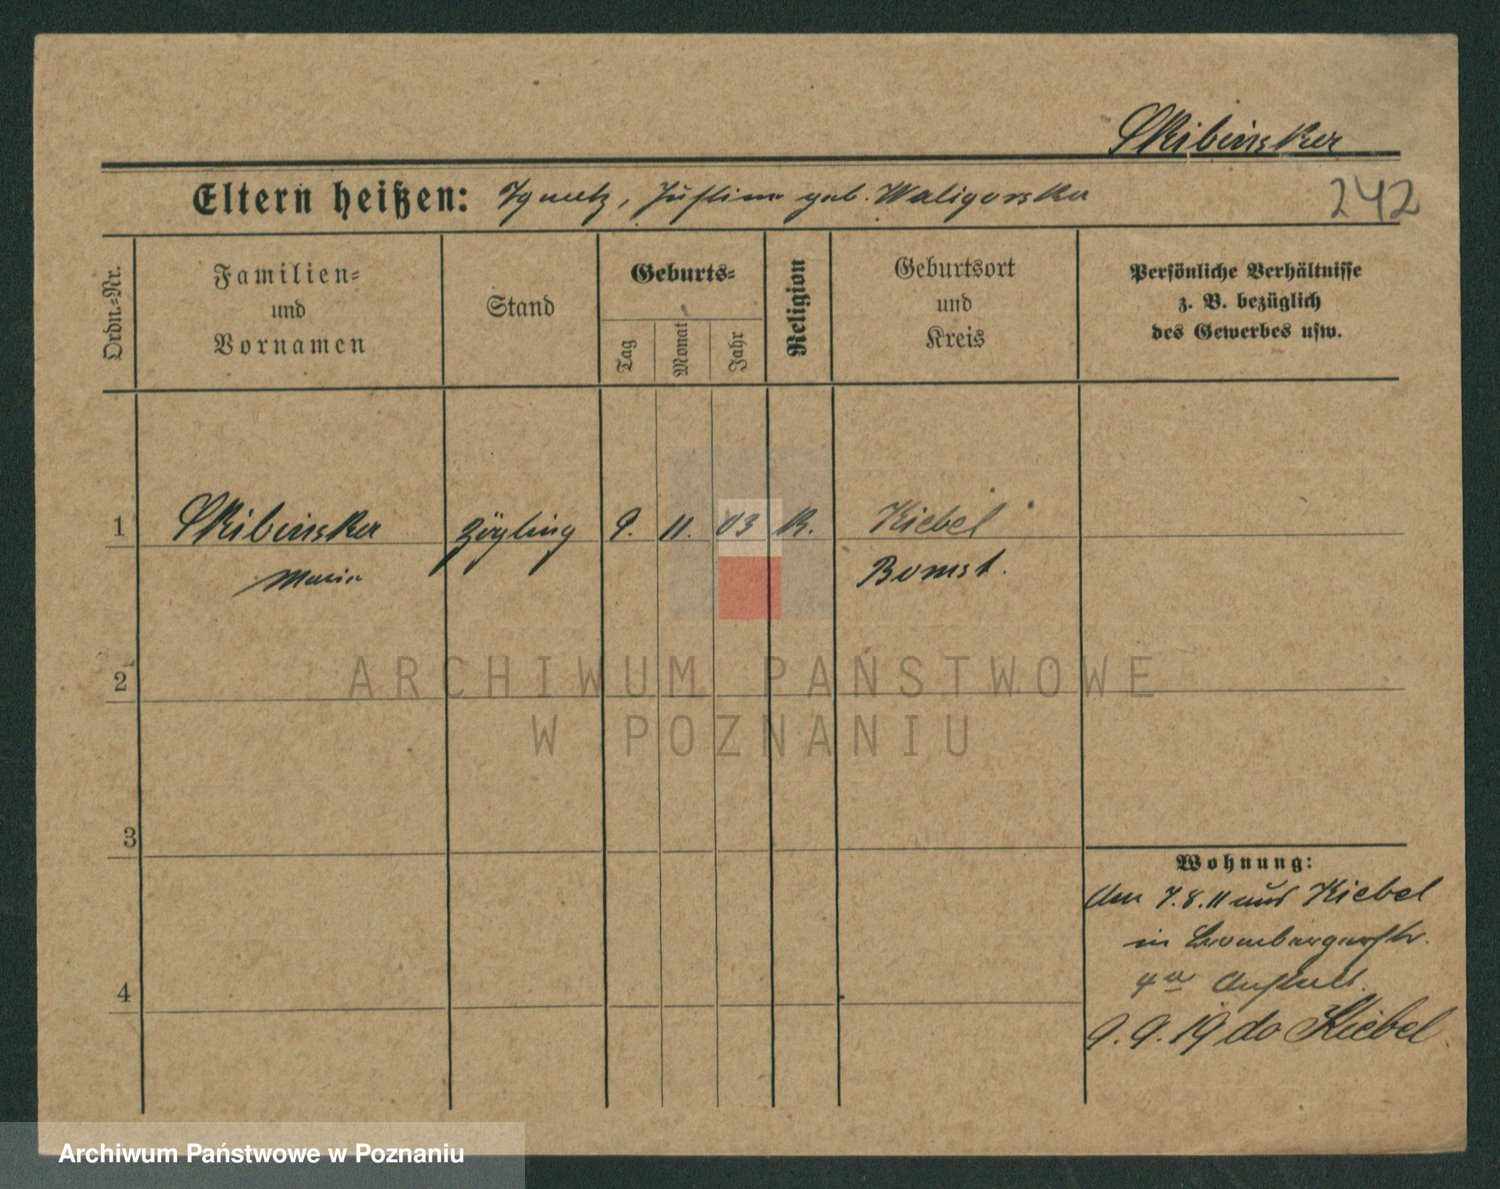 Skibinska
Eltern heißen: Ignatz, Justina geb. Waligorska
242
Ordn.=Nr.
Familien=
und
Vornamen
Stand
Geburts=
Tag
Monat
Jahr
Religion
Geburtsort
und
Kreis
Persönliche Verhältnisse
z. B. bezüglich
des Gewerbes usw.
1 Skibinska Zögling 9. 11. 03 K. Kiebel
Maria Bomst.
2
3
4
Wohnung:
Am 7.8.11 aus Kiebel
in Brombergerstr.
4a Anstalt.
9.9.19 do Kiebel.
ARCHIWUM PAŃSTWOWE
W POZNANIU
Archiwum Państwowe w Poznaniu